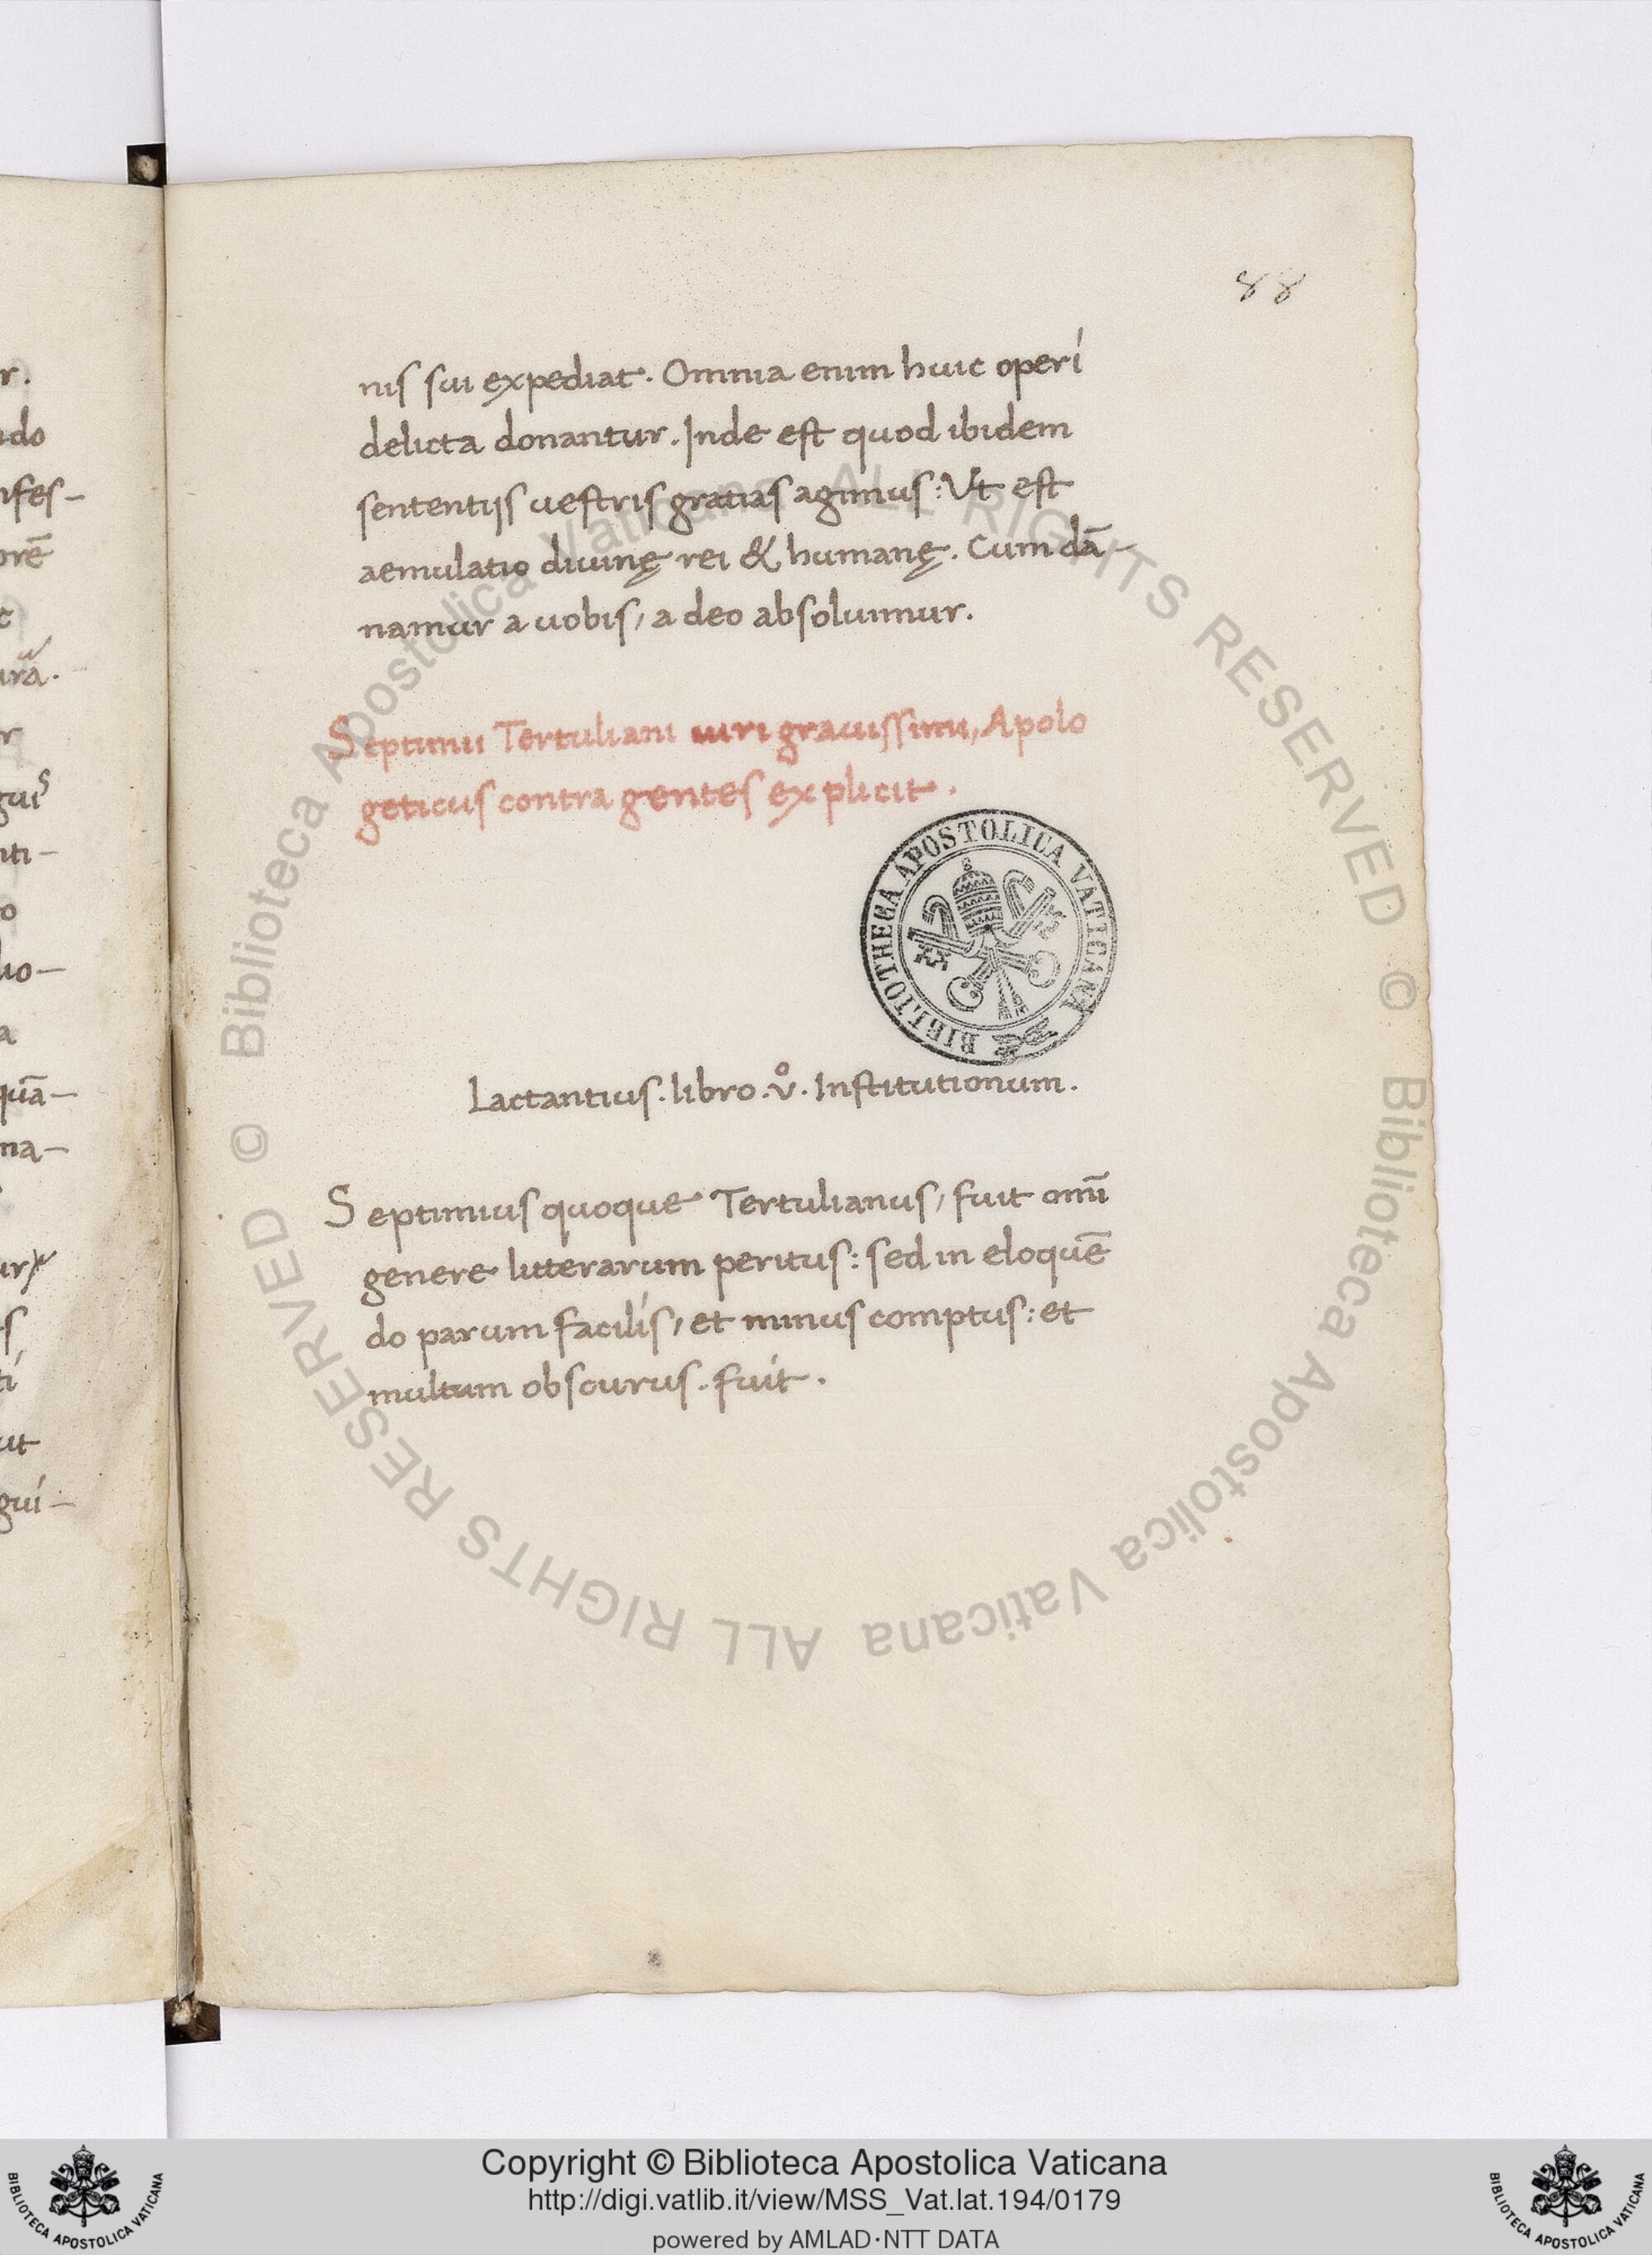 88
nis sui expediat. Omnia enim huic operi
delicta donantur. Inde est quod ibidem
sententijs uestris gratias agimus: Vt est
aemulatio diuinę rei & humanę. Cum dā-
namur a uobis, a deo absoluimur.
Septimii Tertuliani uiri grauissimi, Apolo
geticus contra gentes explicit.
BIBLIOTHECA APOSTOLICA VATICANA
Lactantius. libro. v̊. Institutionum.
Septimius quoque Tertulianus, fuit omī
genere litterarum peritus: sed in eloquē
do parum facilis, et minus comptus: et
multum obscurus. fuit.
© Biblioteca Apostolica Vaticana ALL RIGHTS RESERVED
© Biblioteca Apostolica Vaticana ALL RIGHTS RESERVED
Copyright © Biblioteca Apostolica Vaticana
http://digi.vatlib.it/view/MSS_Vat.lat.194/0179
powered by AMLAD·NTT DATA
BIBLIOTECA APOSTOLICA VATICANA
BIBLIOTECA APOSTOLICA VATICANA